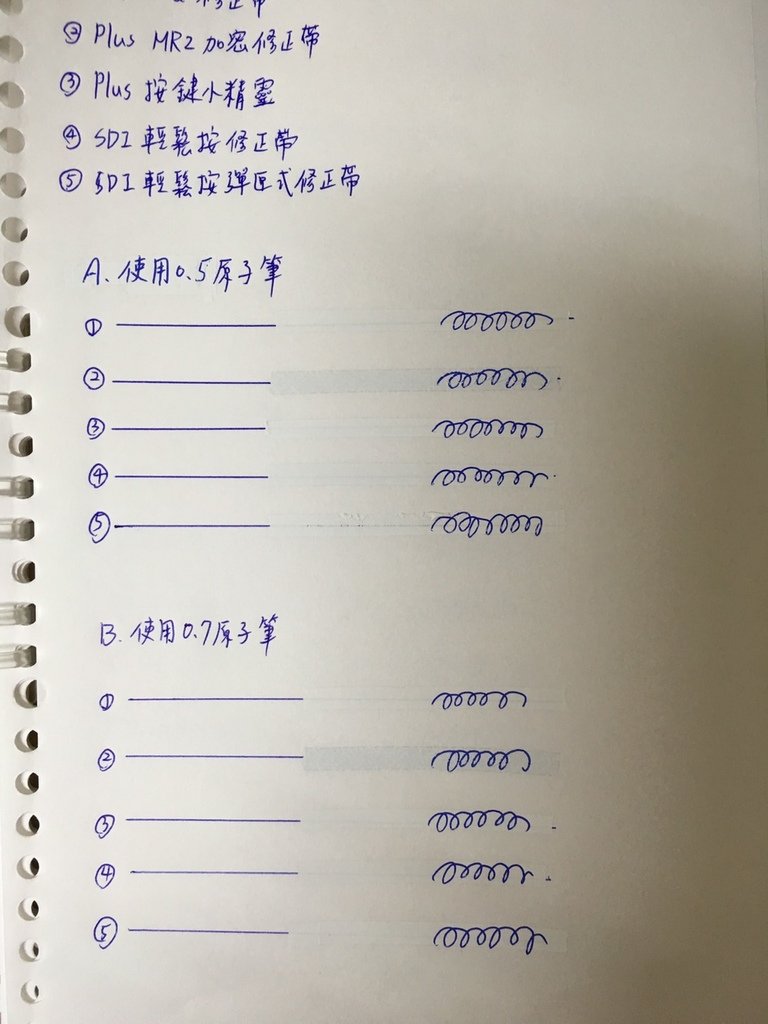 修正帶
② Plus MR2 加密修正帶
③ Plus 按鍵小精靈
④ SDI 輕鬆按修正帶
⑤ SDI 輕鬆按彈匣式修正帶
A. 使用0.5原子筆
①
②
③
④
⑤
B. 使用0.7原子筆
①
②
③
④
⑤